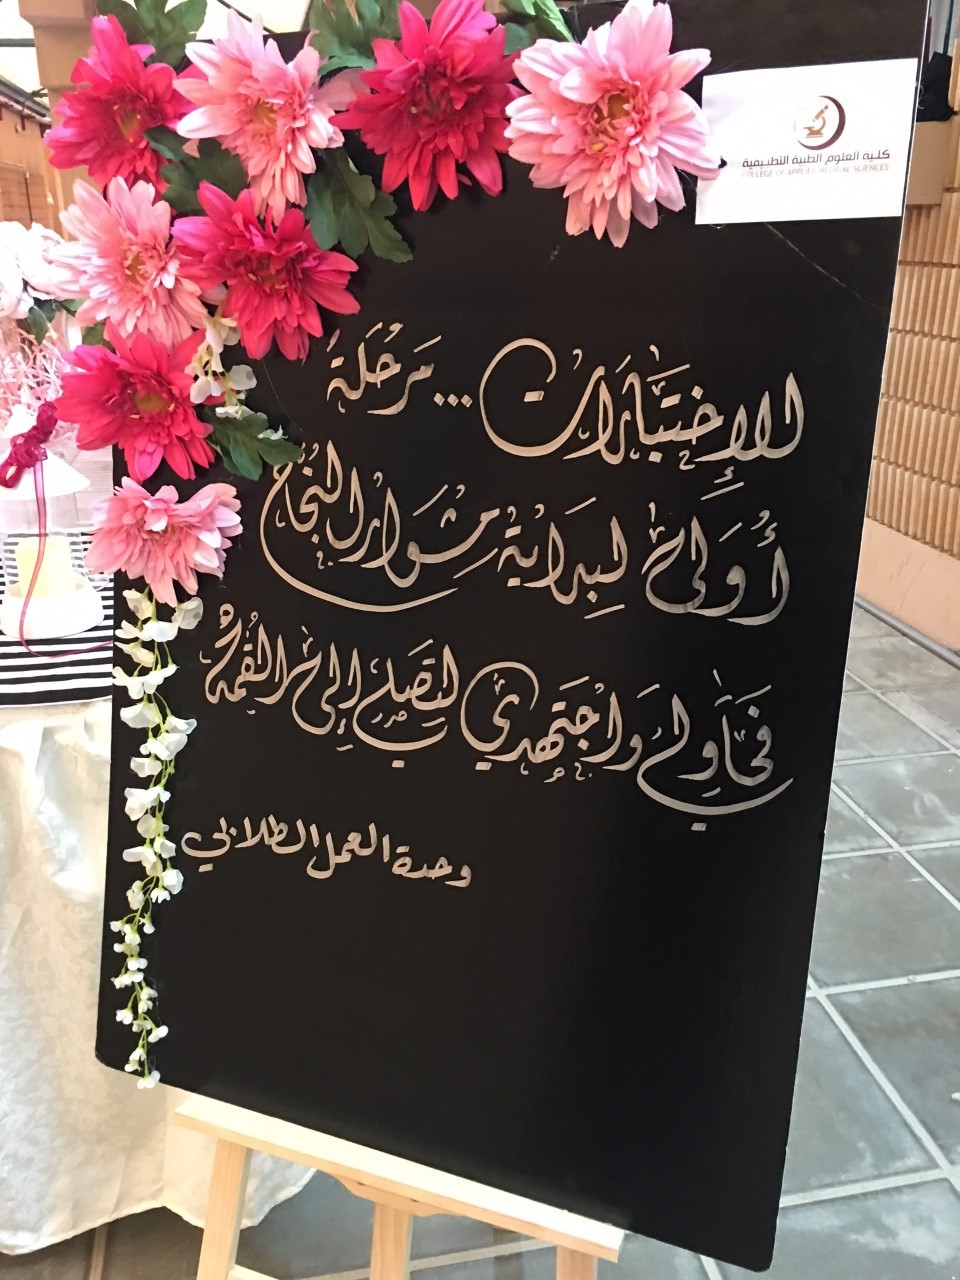 كلية العلوم الطبية التطبيقية
COLLEGE OF APPLIED MEDICAL SCIENCES
الإِختبَارَات ... مَرحُلَةً
أُوَلى لبِدَاية مشوَار النُجاح
فحَاوِلي وَاجتَهدي لتصَلي إلى القُمة
وحدة العمل الطلابي